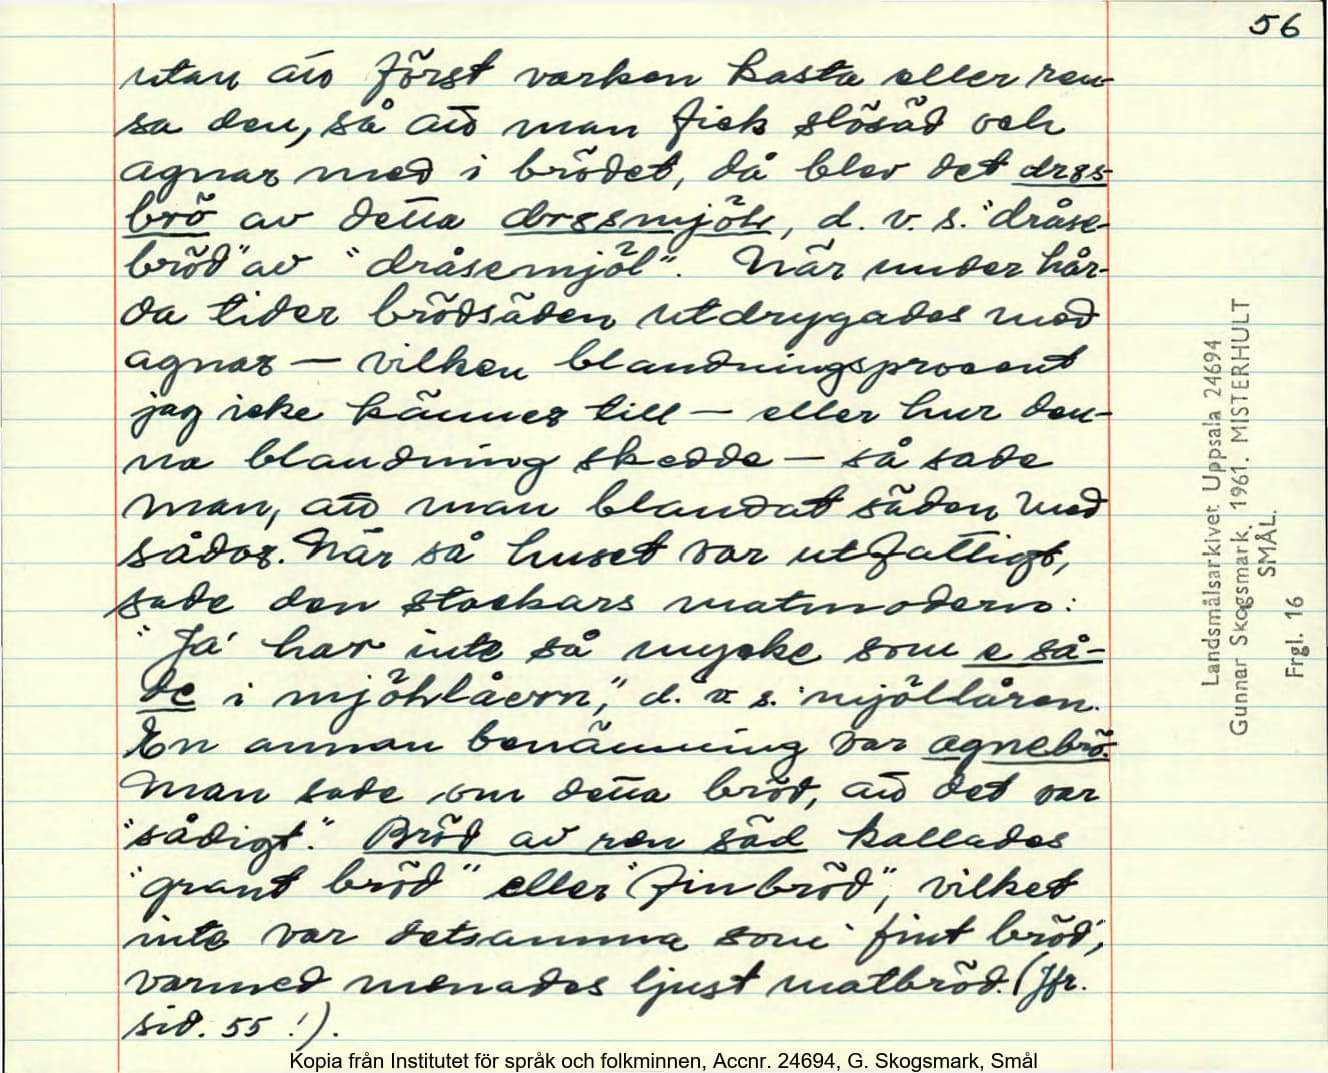 56
utan att först varken kasta eller ren-
sa den, så att man fick slösäd och
agnar med i brödet, då blev det
brö av detta, d. v. s. "dråse-
bröd" av "dråsemjöl". När under hår-
da tider brödsäden utdrygades med
agnar — vilken blandningsprocent
jag icke känner till — eller hur den-
na blandning skedde — så sade
man, att man blandat säden med
sådor. När så huset var utfattigt,
sade den stackars matmodern:
"Ja' har inte så mycke som e så-
de i mjöhlåern," d. v. s. mjöllåren.
En annan benämning var agnebrö.
Man sade om detta bröd, att det var
"sådigt". Bröd av ren säd kallades
"grant bröd" eller "finbröd", vilket
inte var detsamma som "fint bröd",
varmed menades ljust matbröd. (Jfr.
sid. 55!).
Landsmålsarkivet Uppsala 24694
Gunnar Skogsmark. 1961. MISTERHULT
SMÅL.
Frgl. 16
Kopia från Institutet för språk och folkminnen, Accnr. 24694, G. Skogsmark, Smål